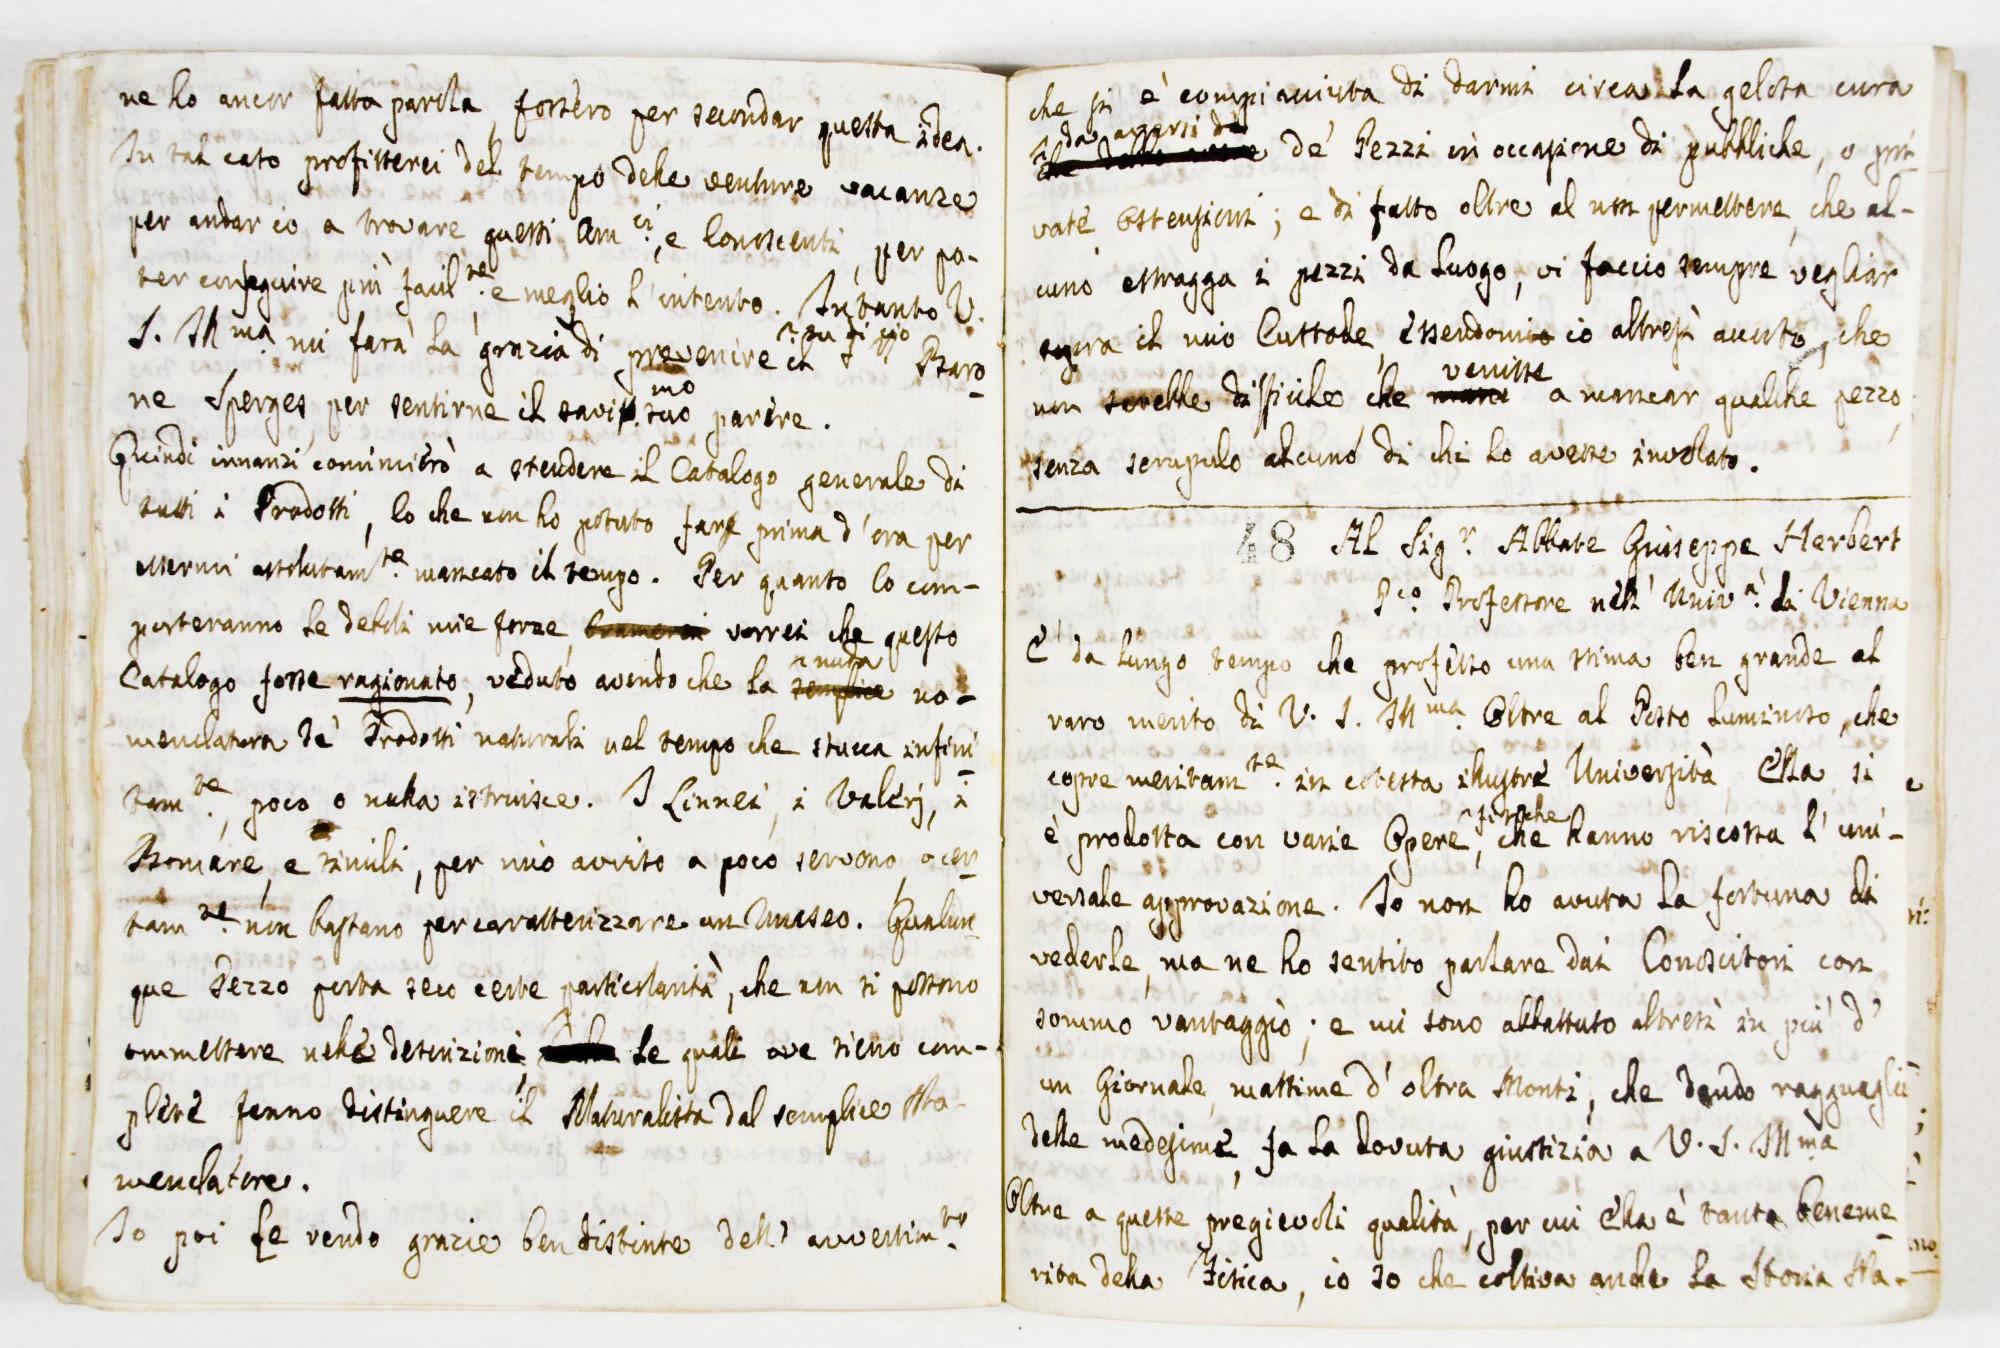 ne ho ancor fatta parola, fossero per secondar questa idea.
In tal caso profitterei del tempo delle venture vacanze
per andar io a trovare questi Am.ci, e Conoscenti, per po-
ter conseguire più facil.te e meglio l'intento. Intanto V.
S. Ill.ma mi farà la grazia di prevenire il
Baro-
ne Sperges, per sentirne il savis.mo suo parere.
Quindi innanzi comincierò a stendere il Catalogo generale di
tutti i Prodotti, lo che non ho potuto fare prima d'ora per
essermi assolutam.te mancato il tempo. Per quanto lo com-
porteranno le deboli mie forze, bramerei vorrei che questo
nuda
Catalogo fosse ragionato, veduto avendo che la semplice no-
menclatura de' Prodotti naturali nel tempo che stucca infini-
tam.te, poco o nulla istruisce. I Linnei, i Valerj, i
Bomare, e simili, per mio avviso a poco servono, o cer-
tam.te non bastano per caratterizzare un Museo. Qualun-
que Pezzo porta seco certe particolarità, che non si possono
ommettere nelle descrizioni, le quali ove sieno com-
plete fanno distinguere il Naturalista dal semplice No-
menclatore.
Io poi Le rendo grazie ben distinte dell' avvertim.to
che si è compiaciuta di darmi circa la gelosa cura
da aversi
de' Pezzi in occasione di pubbliche, o pri-
vate Ostensioni; e di fatto oltre al non permettere, che al-
cuno estragga i pezzi da luogo, vi faccio sempre vegliar
sopra il mio Custode, essendomi io altresì avvisto, che
venisse
non sarebbe difficile che a mancar qualche pezzo,
senza scrupulo alcuno di chi lo avesse involato.
48 Al Sig.r Abbate Giuseppe Herbert
P.co Professore nell' Univ.à di Vienna
E' da lungo tempo che professo una stima ben grande al
raro merito di V. S. Ill.ma Oltre al Posto luminoso, che
copre meritam.te in cotesta illustre Università, Ella si
fisiche
è prodotta con varie Opere, che hanno riscossa l' uni-
versale approvazione. Io non ho avuta la fortuna di
vederle, ma ne ho sentito parlare dai Conoscitori con
sommo vantaggio; e mi sono abbattuto altresì in più d'
un Giornale, massime d' oltra Monti, che dando ragguaglio
delle medesime, fa la dovuta giustizia a V. S. Ill.ma
Oltre a queste pregievoli qualità, per cui Ella è tanto beneme-
rita della Fisica, io so che coltiva anche la Storia Na-